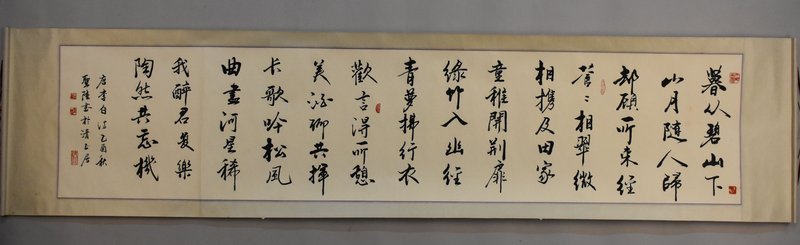 暮从碧山下
山月隨人歸
却顧所来徑
苍〻横翠微
相携及田家
童稚開荆扉
綠竹入幽徑
青蘿拂行衣
歡言得所憩
美酒聊共揮
长歌吟松风
曲盡河星稀
我醉君复樂
陶然共忘機
唐李白诗乙酉秋
書於清
居